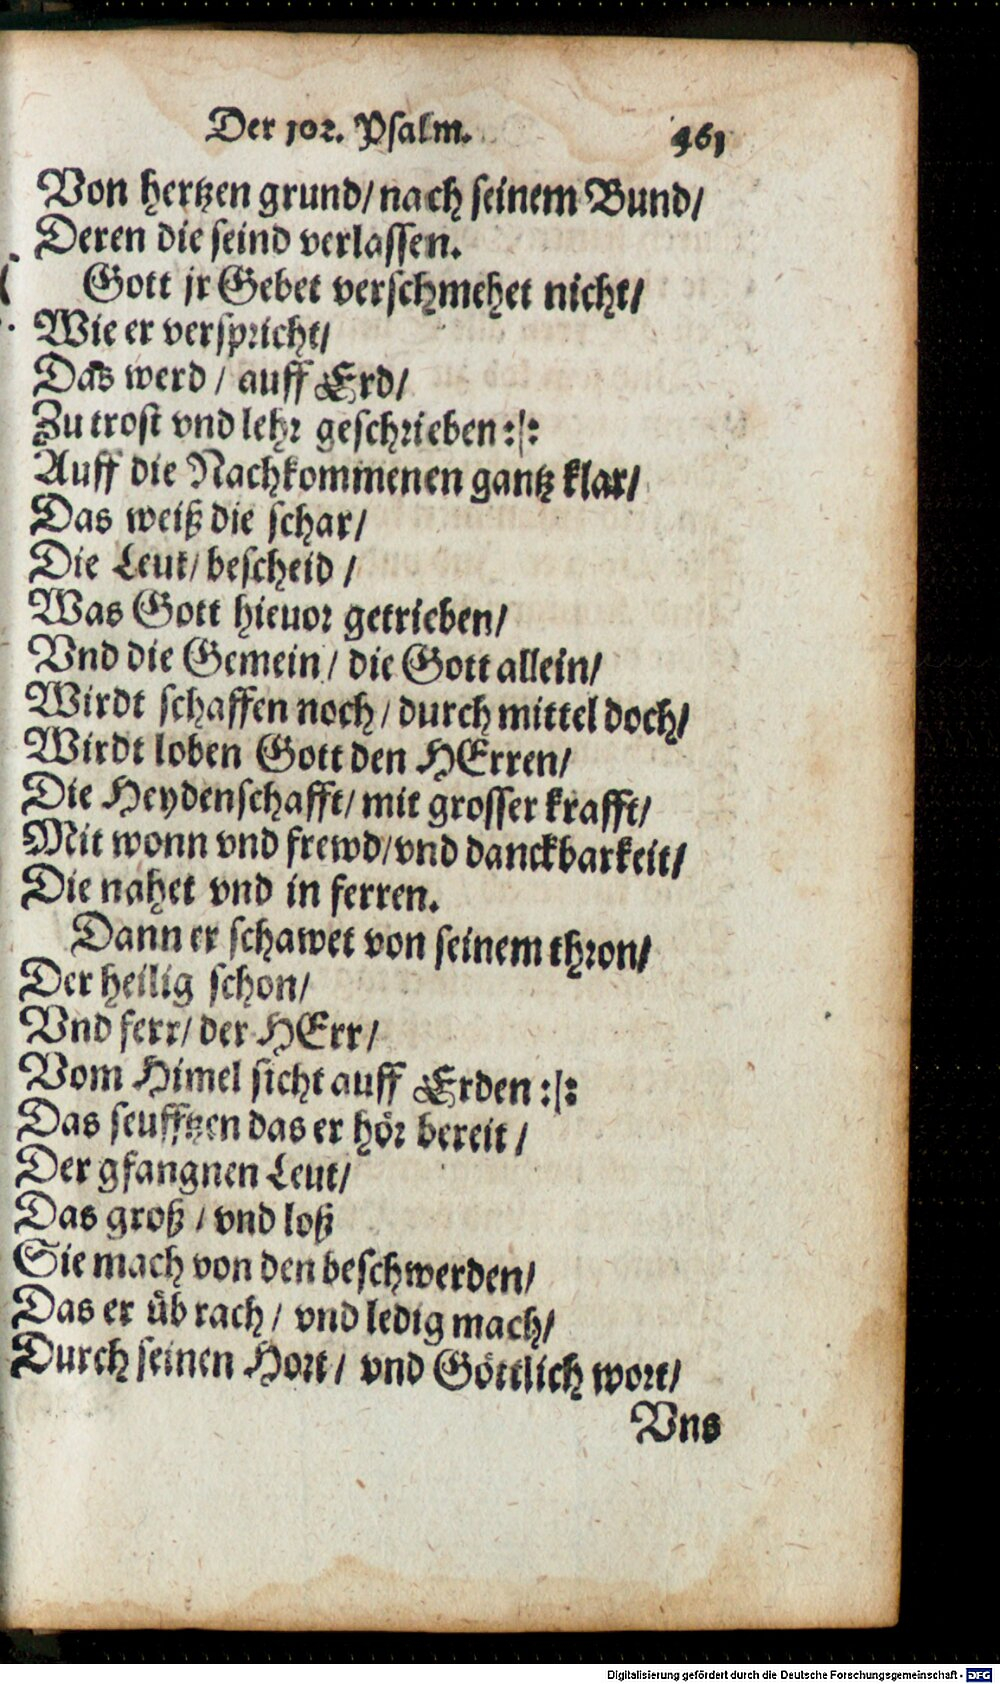 Der 102. Psalm. 461
Von hertzen grund/ nach seinem Bund/
Deren die seind verlassen.
Gott jr Gebet verschmehet nicht/
Wie er verspricht/
Das werd / auff Erd/
Zu trost vnd lehr geschrieben :|:
Auff die Nachkommenen gantz klar/
Das weiß die schar/
Die Leut/ bescheid /
Was Gott hieuor getrieben/
Vnd die Gemein/ die Gott allein/
Wirdt schaffen noch/ durch mittel doch/
Wirdt loben Gott den HErren/
Die Heydenschafft/ mit grosser krafft/
Mit wonn vnd frewd/ vnd danckbarkeit/
Die nahet vnd in ferren.
Dann er schawet von seinem thron/
Der heilig schon/
Vnd ferr/ der HErr/
Vom Himel sicht auff Erden :|:
Das seufftzen das er hör bereit /
Der gfangnen Leut/
Das groß / vnd loß
Sie mach von den beschwerden/
Das er üb rach/ vnd ledig mach/
Durch seinen Hort/ vnd Göttlich wort/
Vns
Digitalisierung gefördert durch die Deutsche Forschungsgemeinschaft - DFG